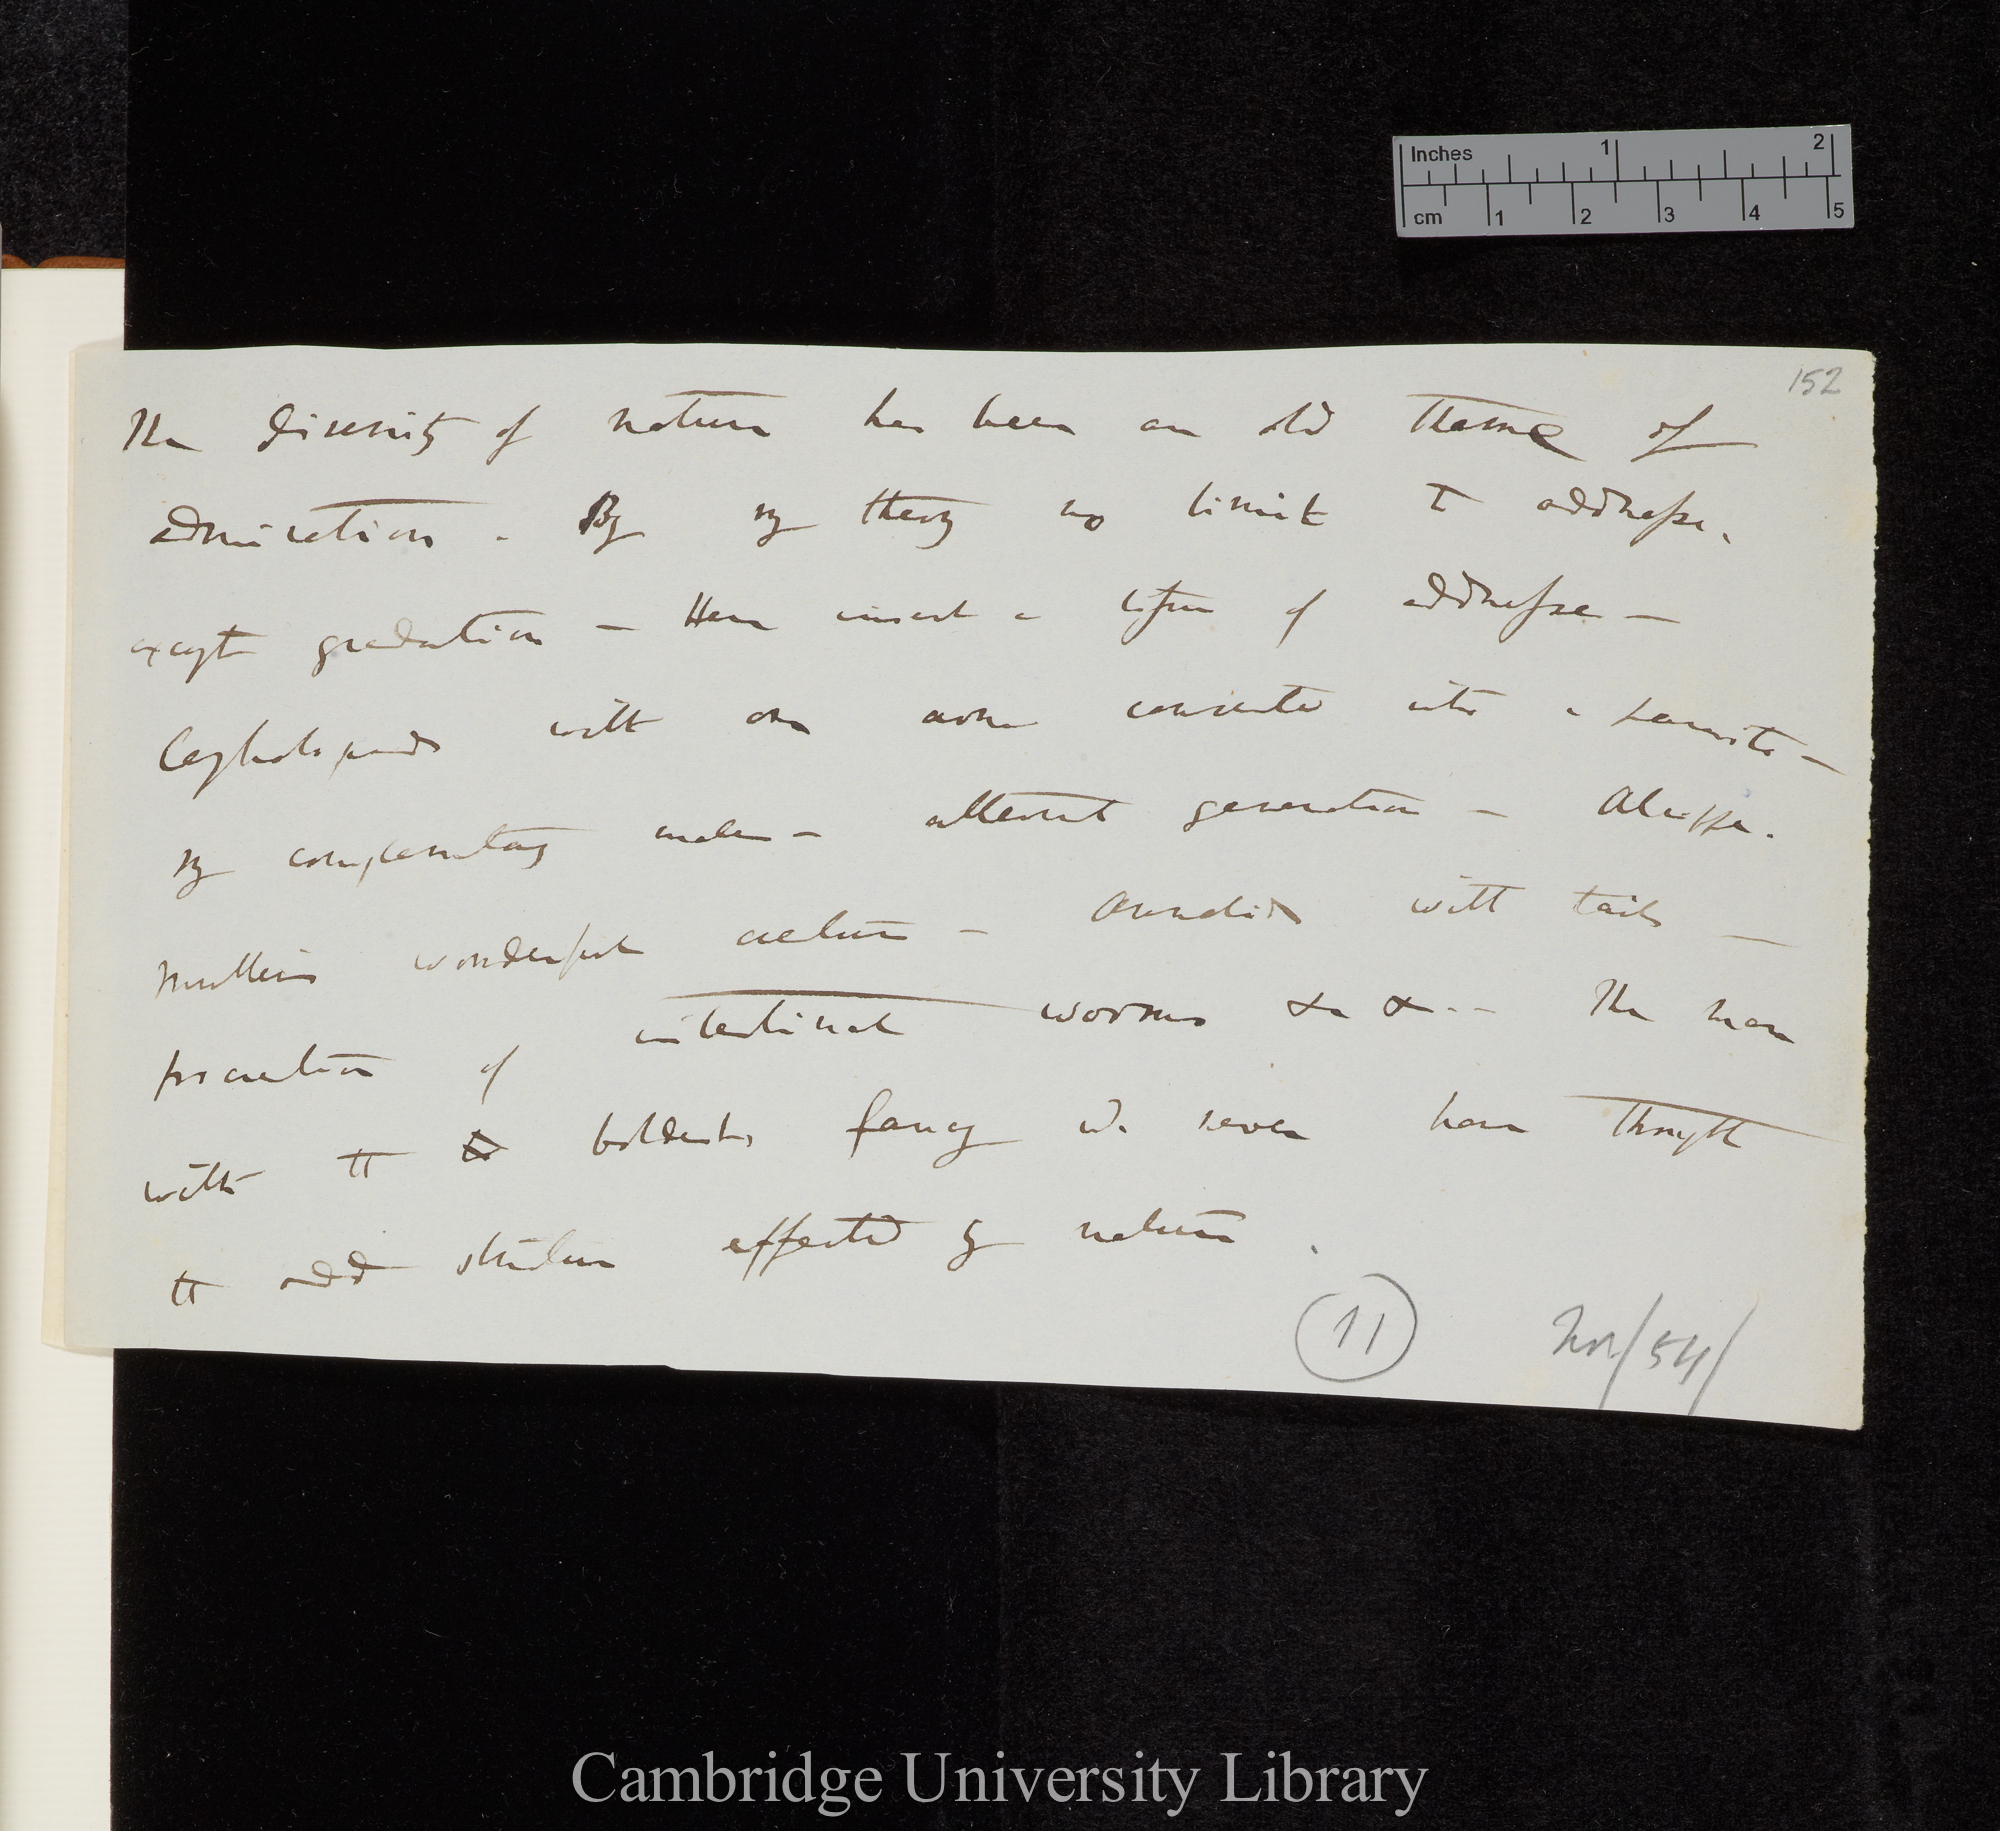 Inches 1 2
cm 1 2 3 4 5
152
The diversity of nature has been an old theme of
admiration. By my theory no limit to oddnesse,
except gradation — Here insert a list of oddnesse —
Cephalopod with one arm converted into a parasite —
my complemental males — alternate generation — Alcippe.
Mullers wonderful creature — Annelid with tails —
procreation of intestinal worms &c &c. — The man
with the boldest fancy wd. never have thought
the odd structure effected by nature.
11
Nov/54/
Cambridge University Library